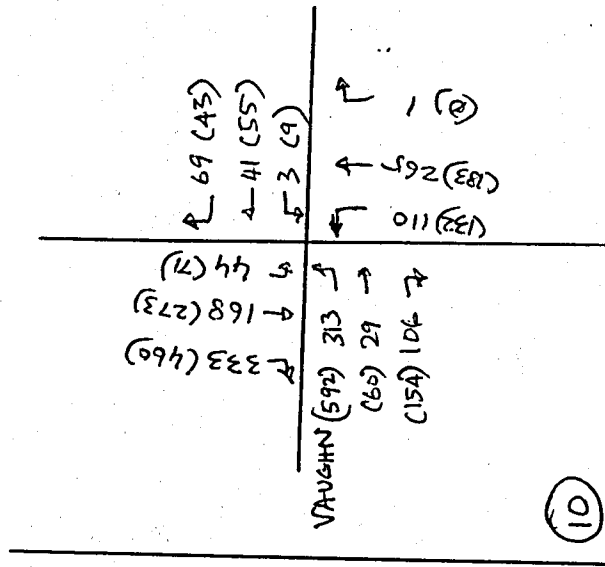 69 (43)
41 (55)
3 (9)
1
(183) 265
(132) 110
44 (71)
168 (273)
333 (460)
VAUGHN (592) 313
(60) 29
(154) 106
10